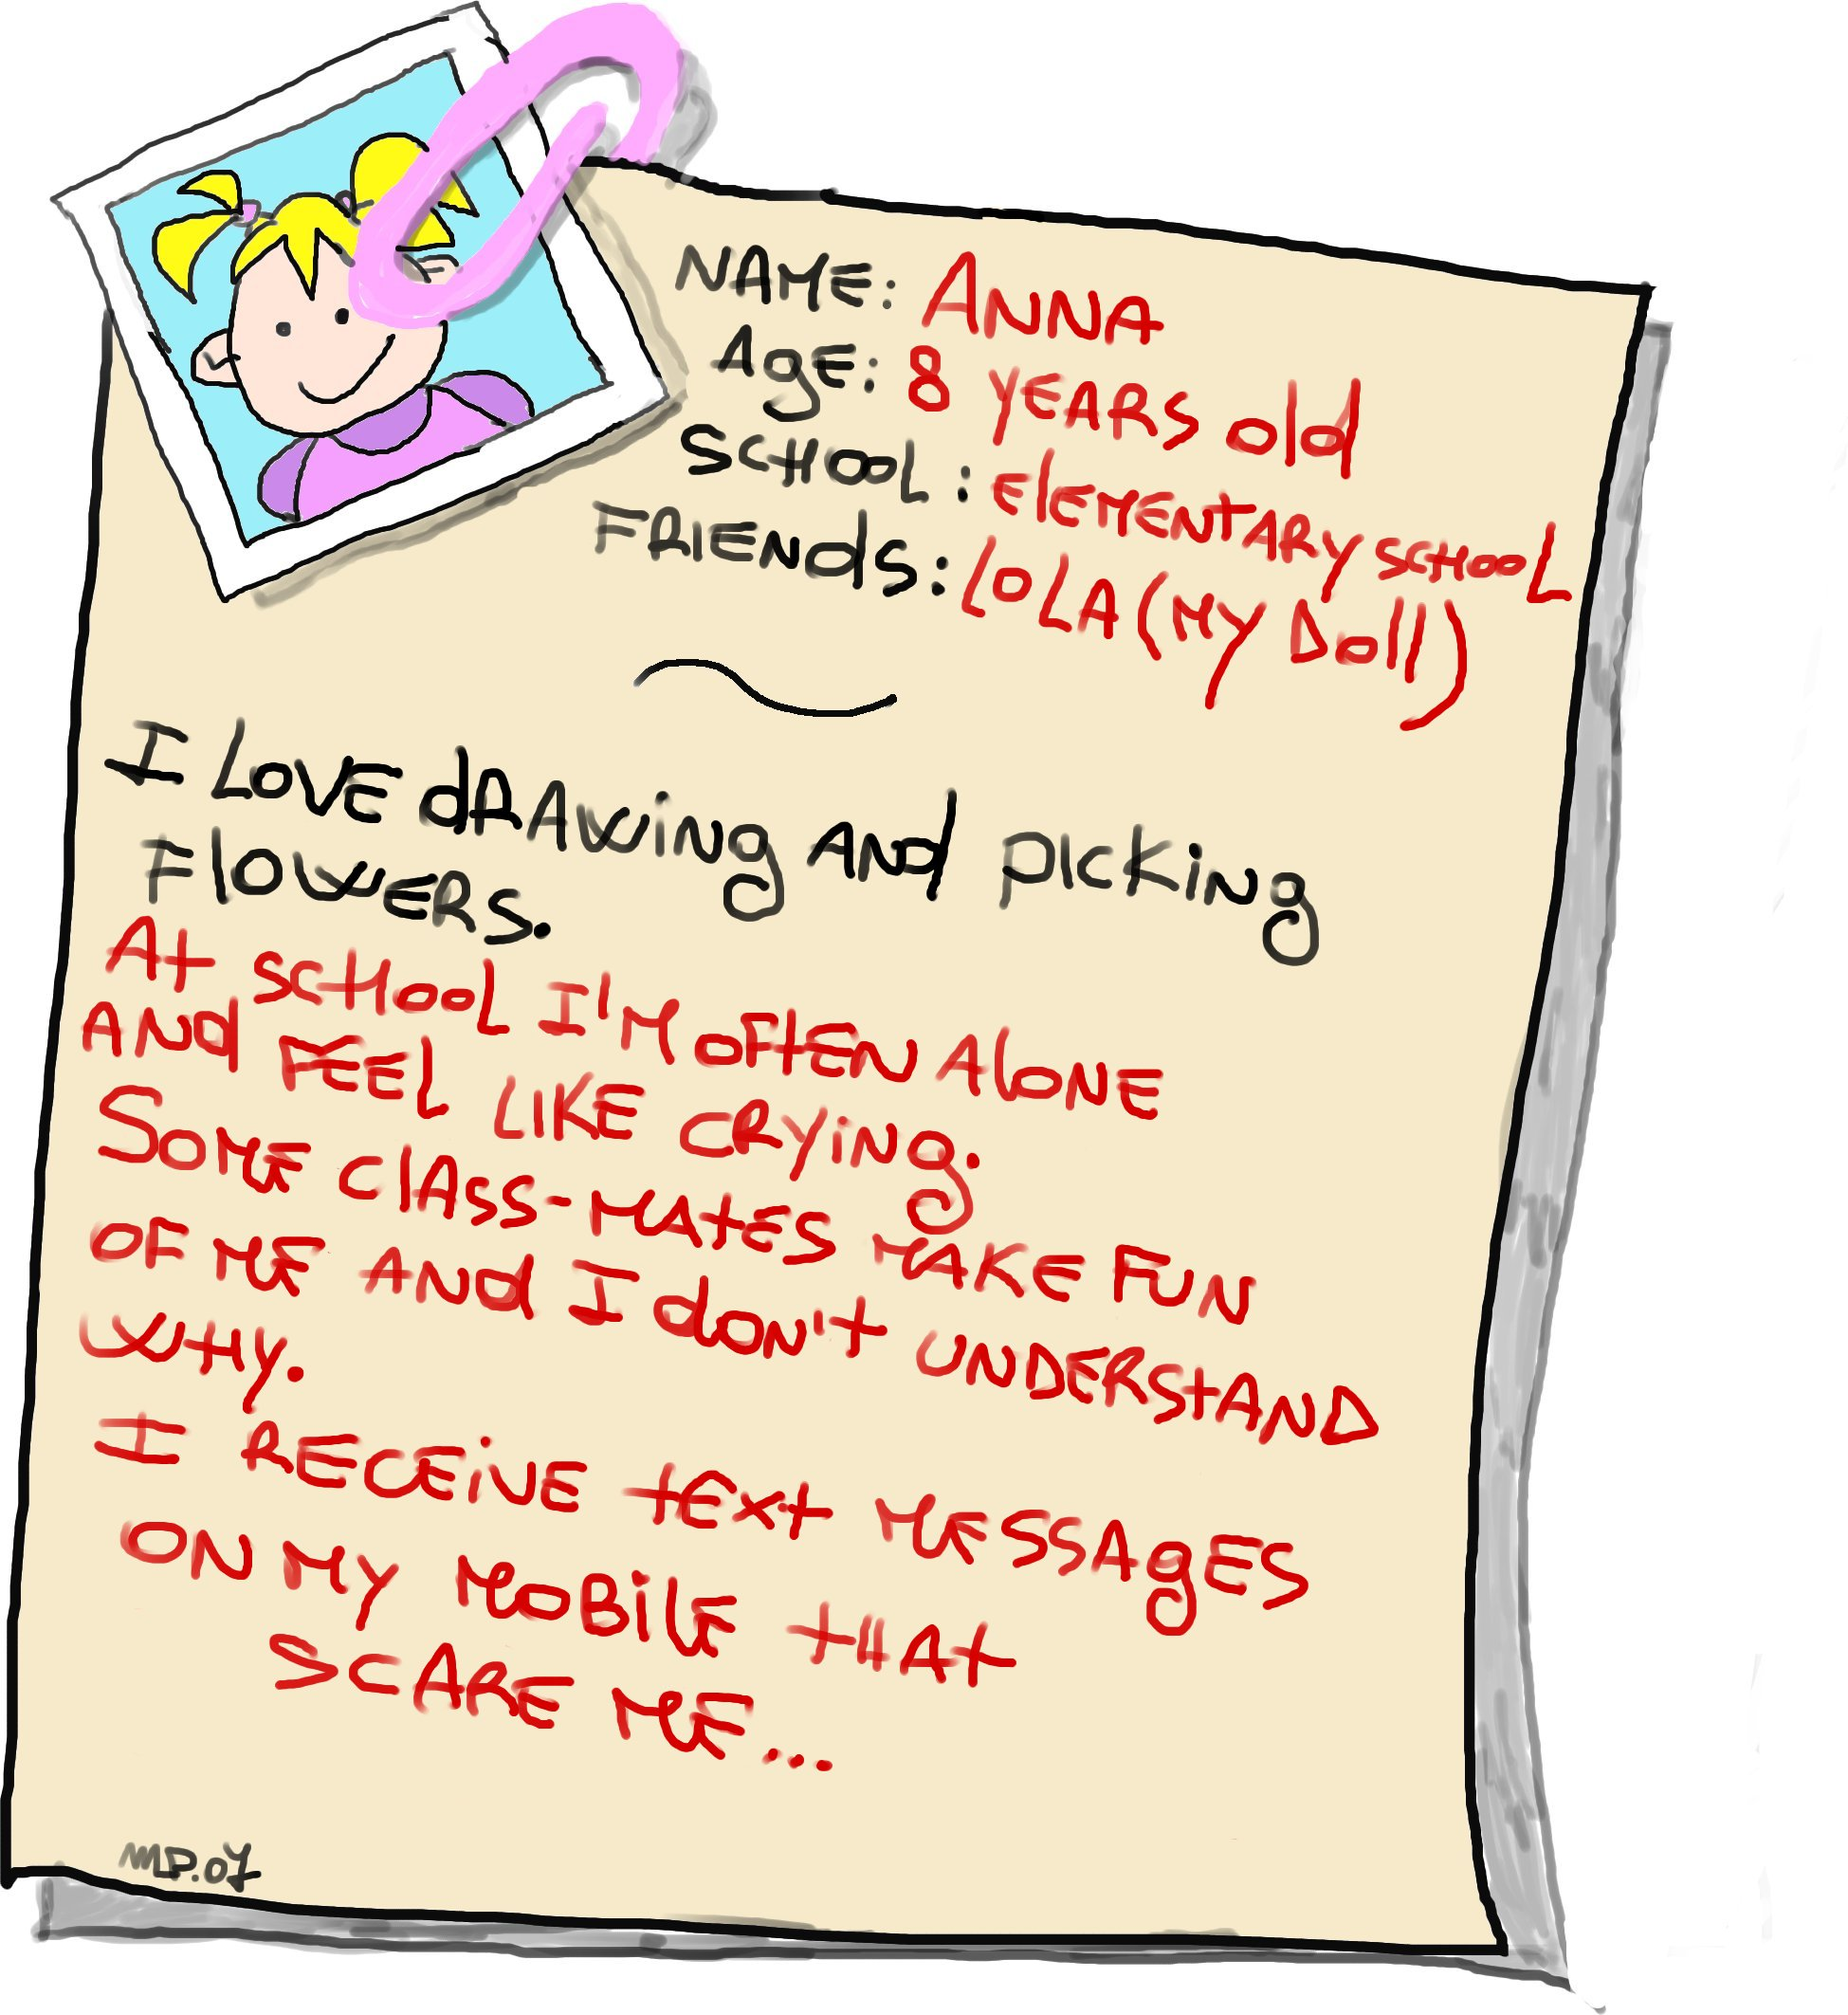 NAME: ANNA
AgE: 8 YEARS old
SCHOOL: ElEMENTARY SCHOOL
FRIENds: LOLA (MY Doll)
I LOVE dRAWiNg ANd PICKiNg
FlOWERS.
At SCHOOL I'M OFtEN AlONE
ANd FEEL LIKE CRYiNg.
SOME ClASS-MAtES MAKE FUN
OF ME ANd I dON't UNDERStAND
WHY.
I RECEiVE tEXt MESSAgES
ON MY MOBiLE tHAt
SCARE ME...
MP.07